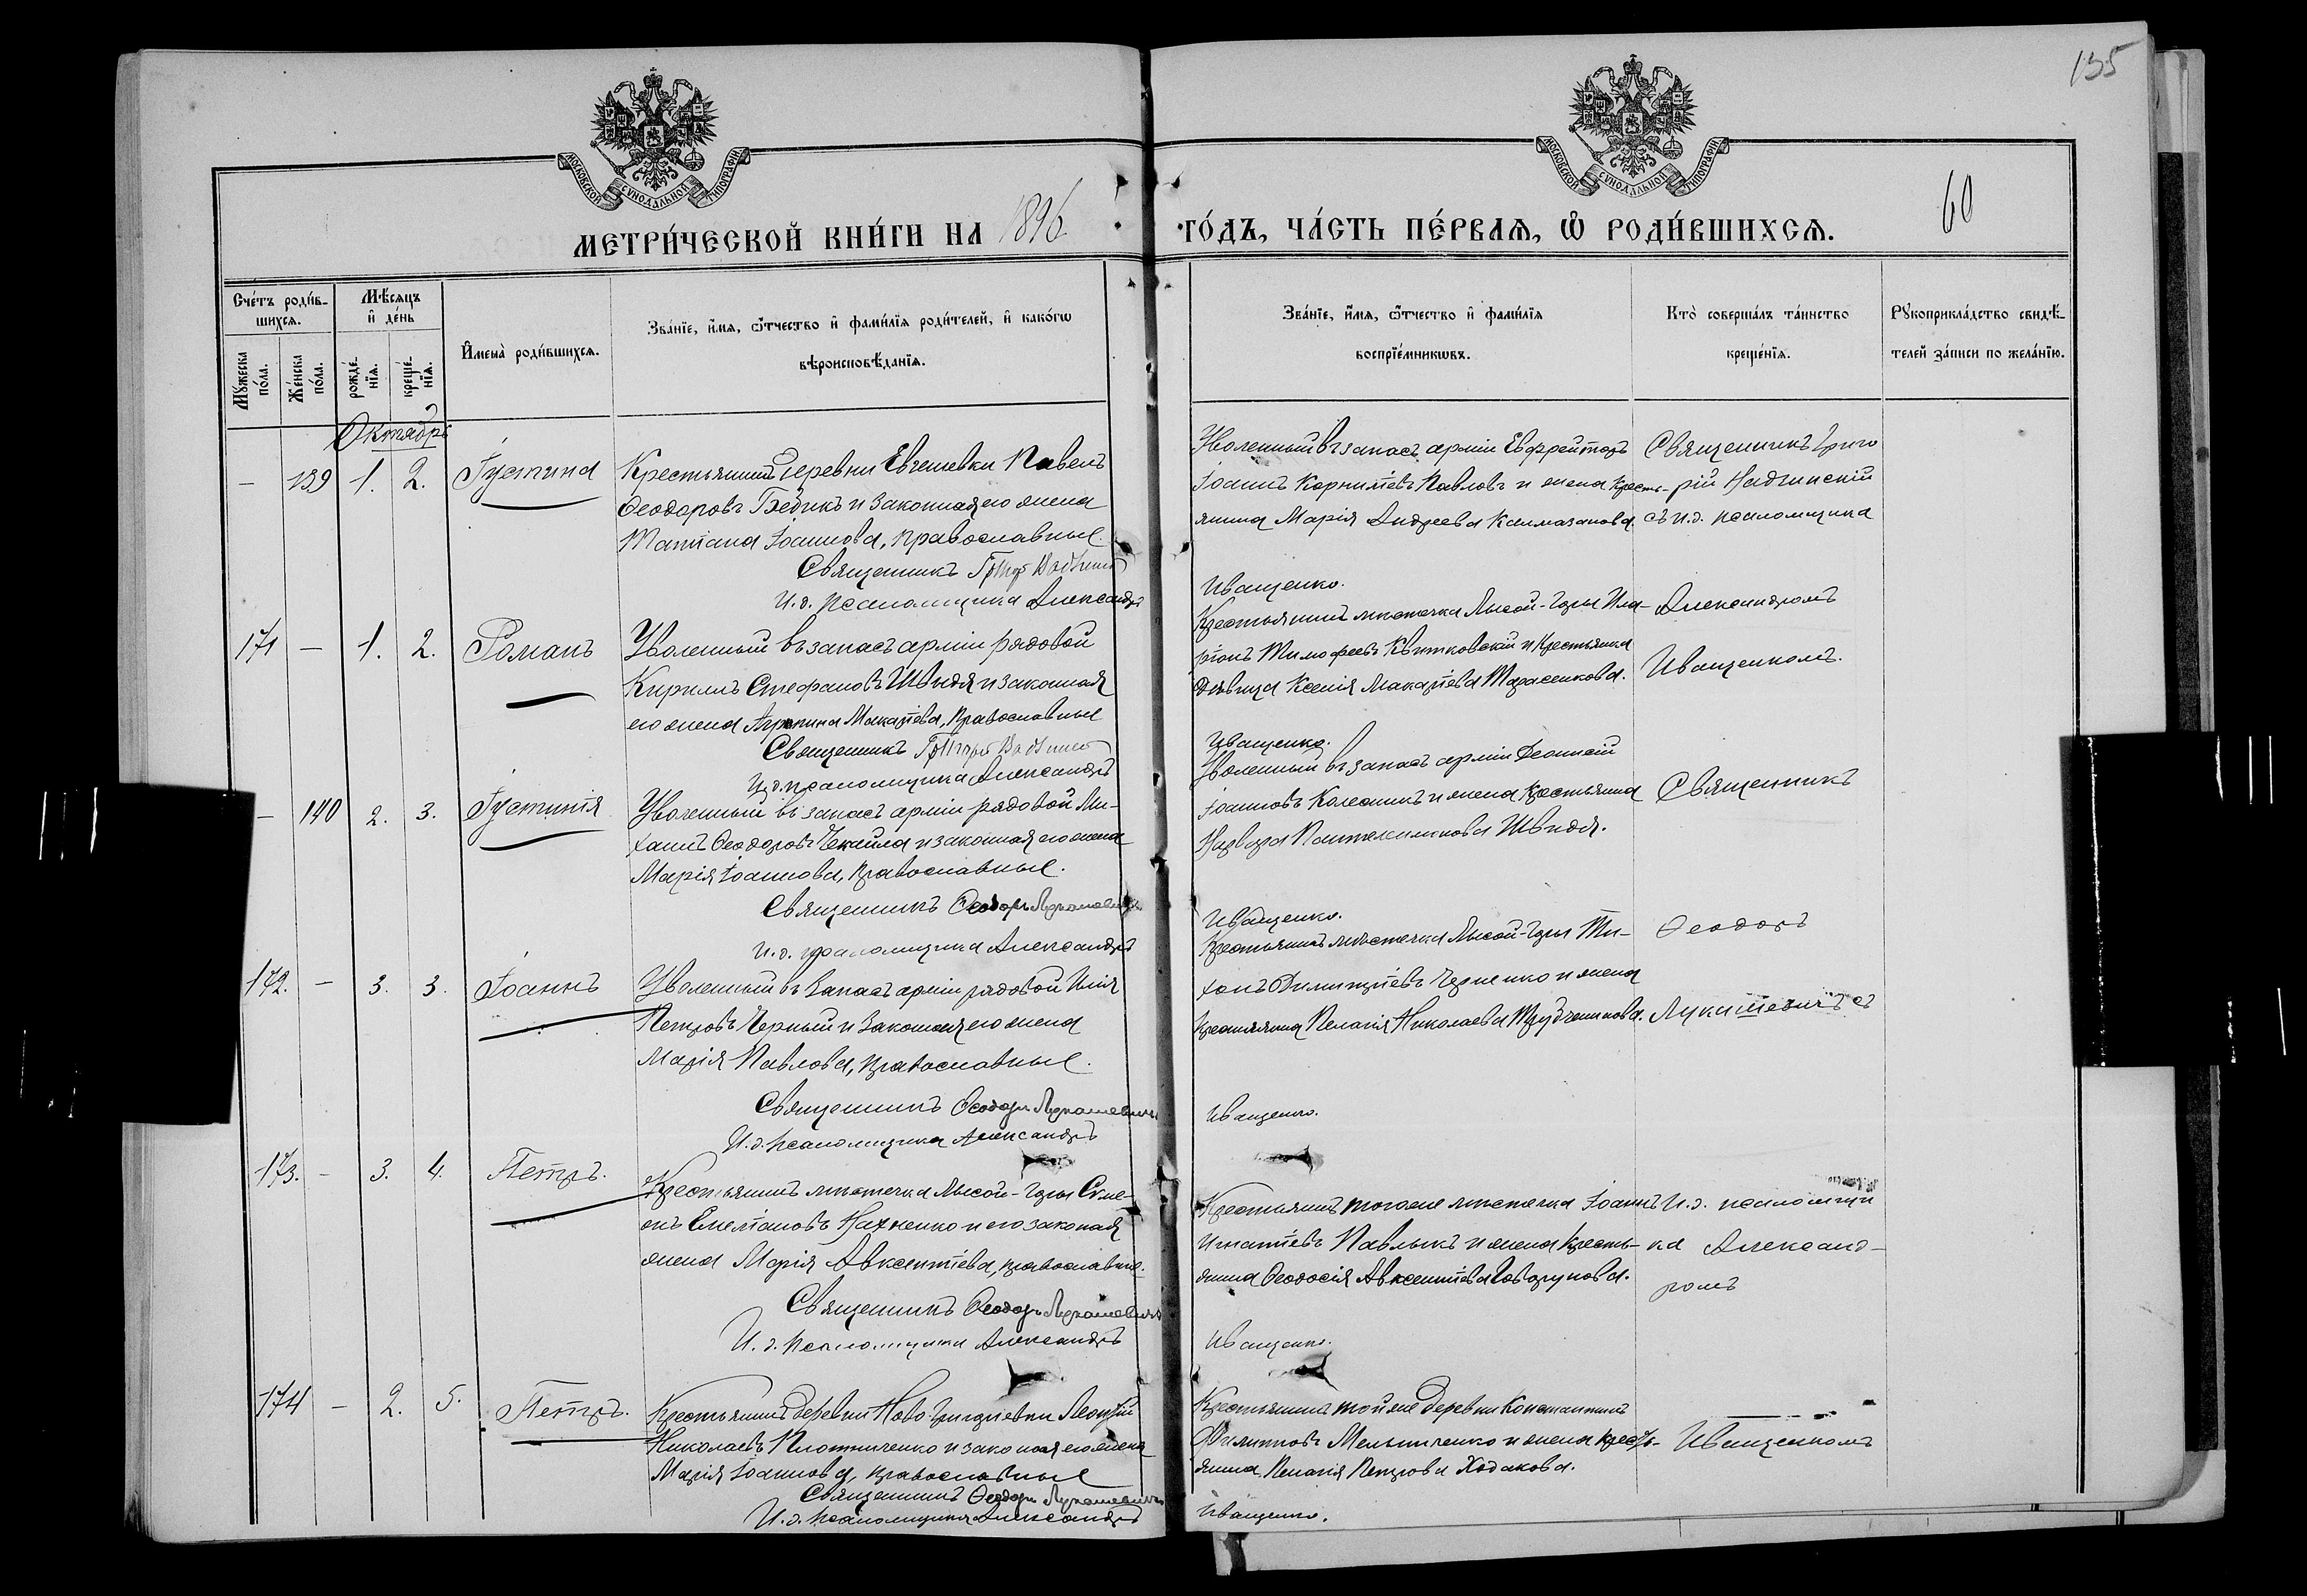 135
МОСКОВСКОЙ СѴНОДАЛЬНОЙ ТИПОГРАФІИ
МОСКОВСКОЙ СѴНОДАЛЬНОЙ ТИПОГРАФІИ
60
МЕТРИ́ЧЕСКОЙ КНИ́ГИ НА 1896
ГО́ДЪ, ЧА́СТЬ ПЕ́РВАЯ, Ѿ РОДИ́ВШИХСЯ.
Сче́тъ роди́в-
шихся.
Мꙋ́жеска по́ла.
Же́нска по́ла.
Мѣ́сяцъ и҆ де́нь
рожде́-
нїя.
креще́-
нїя.
И҆мена̀ роди́вшихся.
Зва́нїе, и҆́мя, ѻ҆́тчество и҆ фами́лїя роди́телей, и҆ како́гѡ
вѣроисповѣ́данїя.
Зва́нїе, и҆́мя, ѻ҆́тчество и҆ фами́лїя
воспрїе́мникѡвъ.
Кто̀ соверша́лъ та́инство
креще́нїя.
Рꙋкоприкла́дство свидѣ́-
телей за́писи по жела́нїю.
Октябрь
– 139 1. 2. Іустина
Крестьянинъ деревни Евчешевки Павелъ
Ѳеодоровъ Бедикъ и законная его жена
Татіана Іоаннова, православные.
Священникъ
И.д. псаломщика Александръ
Уволенный въ запасъ арміи Ефрейторъ
Іоаннъ Корниліевъ Павловъ и жена кресть-
янина Марія Андреева Калмазанова.
Иващенко.
Священникъ Григо
рій Надзинскій
съ и.д. псаломщика
171 – 1. 2. Романъ
Уволенный въ запасъ арміи рядовой
Кириллъ Стефановъ Швидя и законная
его жена Агрипина Макаріева, православные
Священникъ
И.д. псаломщика Александръ
Крестьянинъ мѣстечка Лысой-Горы Ила-
ріонъ Тимофеевъ Квитковскій и крестьянка
дѣвица Ксенія Макаріева Тарасенкова.
Иващенко.
Александромъ
Иващенкомъ.
– 140 2. 3. Іустинія
Уволенный въ запасъ арміи рядовой Ми-
хаилъ Ѳеодоровъ Чекайла и законная его жена
Марія Іоаннова, православные.
Священникъ Ѳеодоръ Лукашевичъ
И.д. псаломщика Александръ
Уволенный въ запасъ арміи
Іоанновъ Колесникъ и жена крестьянина
Пантелимонова Швидя.
Иващенко.
Священникъ
172. – 3. 3. Іоаннъ
Уволенный въ запасъ арміи рядовой Илія
Петровъ Черный и законная его жена
Марія Павлова, православные.
Священникъ Ѳеодоръ Лукашевичъ
И.д. псаломщика Александръ
Крестьянинъ мѣстечка Лысой-Горы Ти-
хонъ Димитріевъ Черненко и жена
крестьянина Пелагія Николаева Трубченинова.
Иващенко.
Ѳеодоръ
Лукашевичъ съ
173. – 3. 4. Петръ.
Крестьянинъ мѣстечка Лысой-Горы Симе-
онъ Емеліановъ Нахненко и его законая
жена Марія Авксентіева, православные.
Священникъ Ѳеодоръ Лукашевичъ
И.д. псаломщика Александръ
Крестьянинъ тогоже мѣстечка Іоаннъ
Игнатіевъ Павлыкъ и жена кресть-
янина Ѳеодосія Авксентіева Говорунова.
Иващенко.
И.д. псаломщи
ка Александ-
ромъ
174 – 2. 5. Петръ.
Крестьянинъ деревни Ново-Григориевки Леонтій
Николаевъ Плотниченко и законая его жена
Марія Іоаннова, православные
Священникъ Ѳеодоръ Лукашевичъ
И.д. псаломщика Александръ
Крестьянинъ той же деревни Константинъ
Филиповъ Мельниченко и жена кресть-
янина Пелагія Петрова Ходакова.
Иващенко.
Иващенкомъ